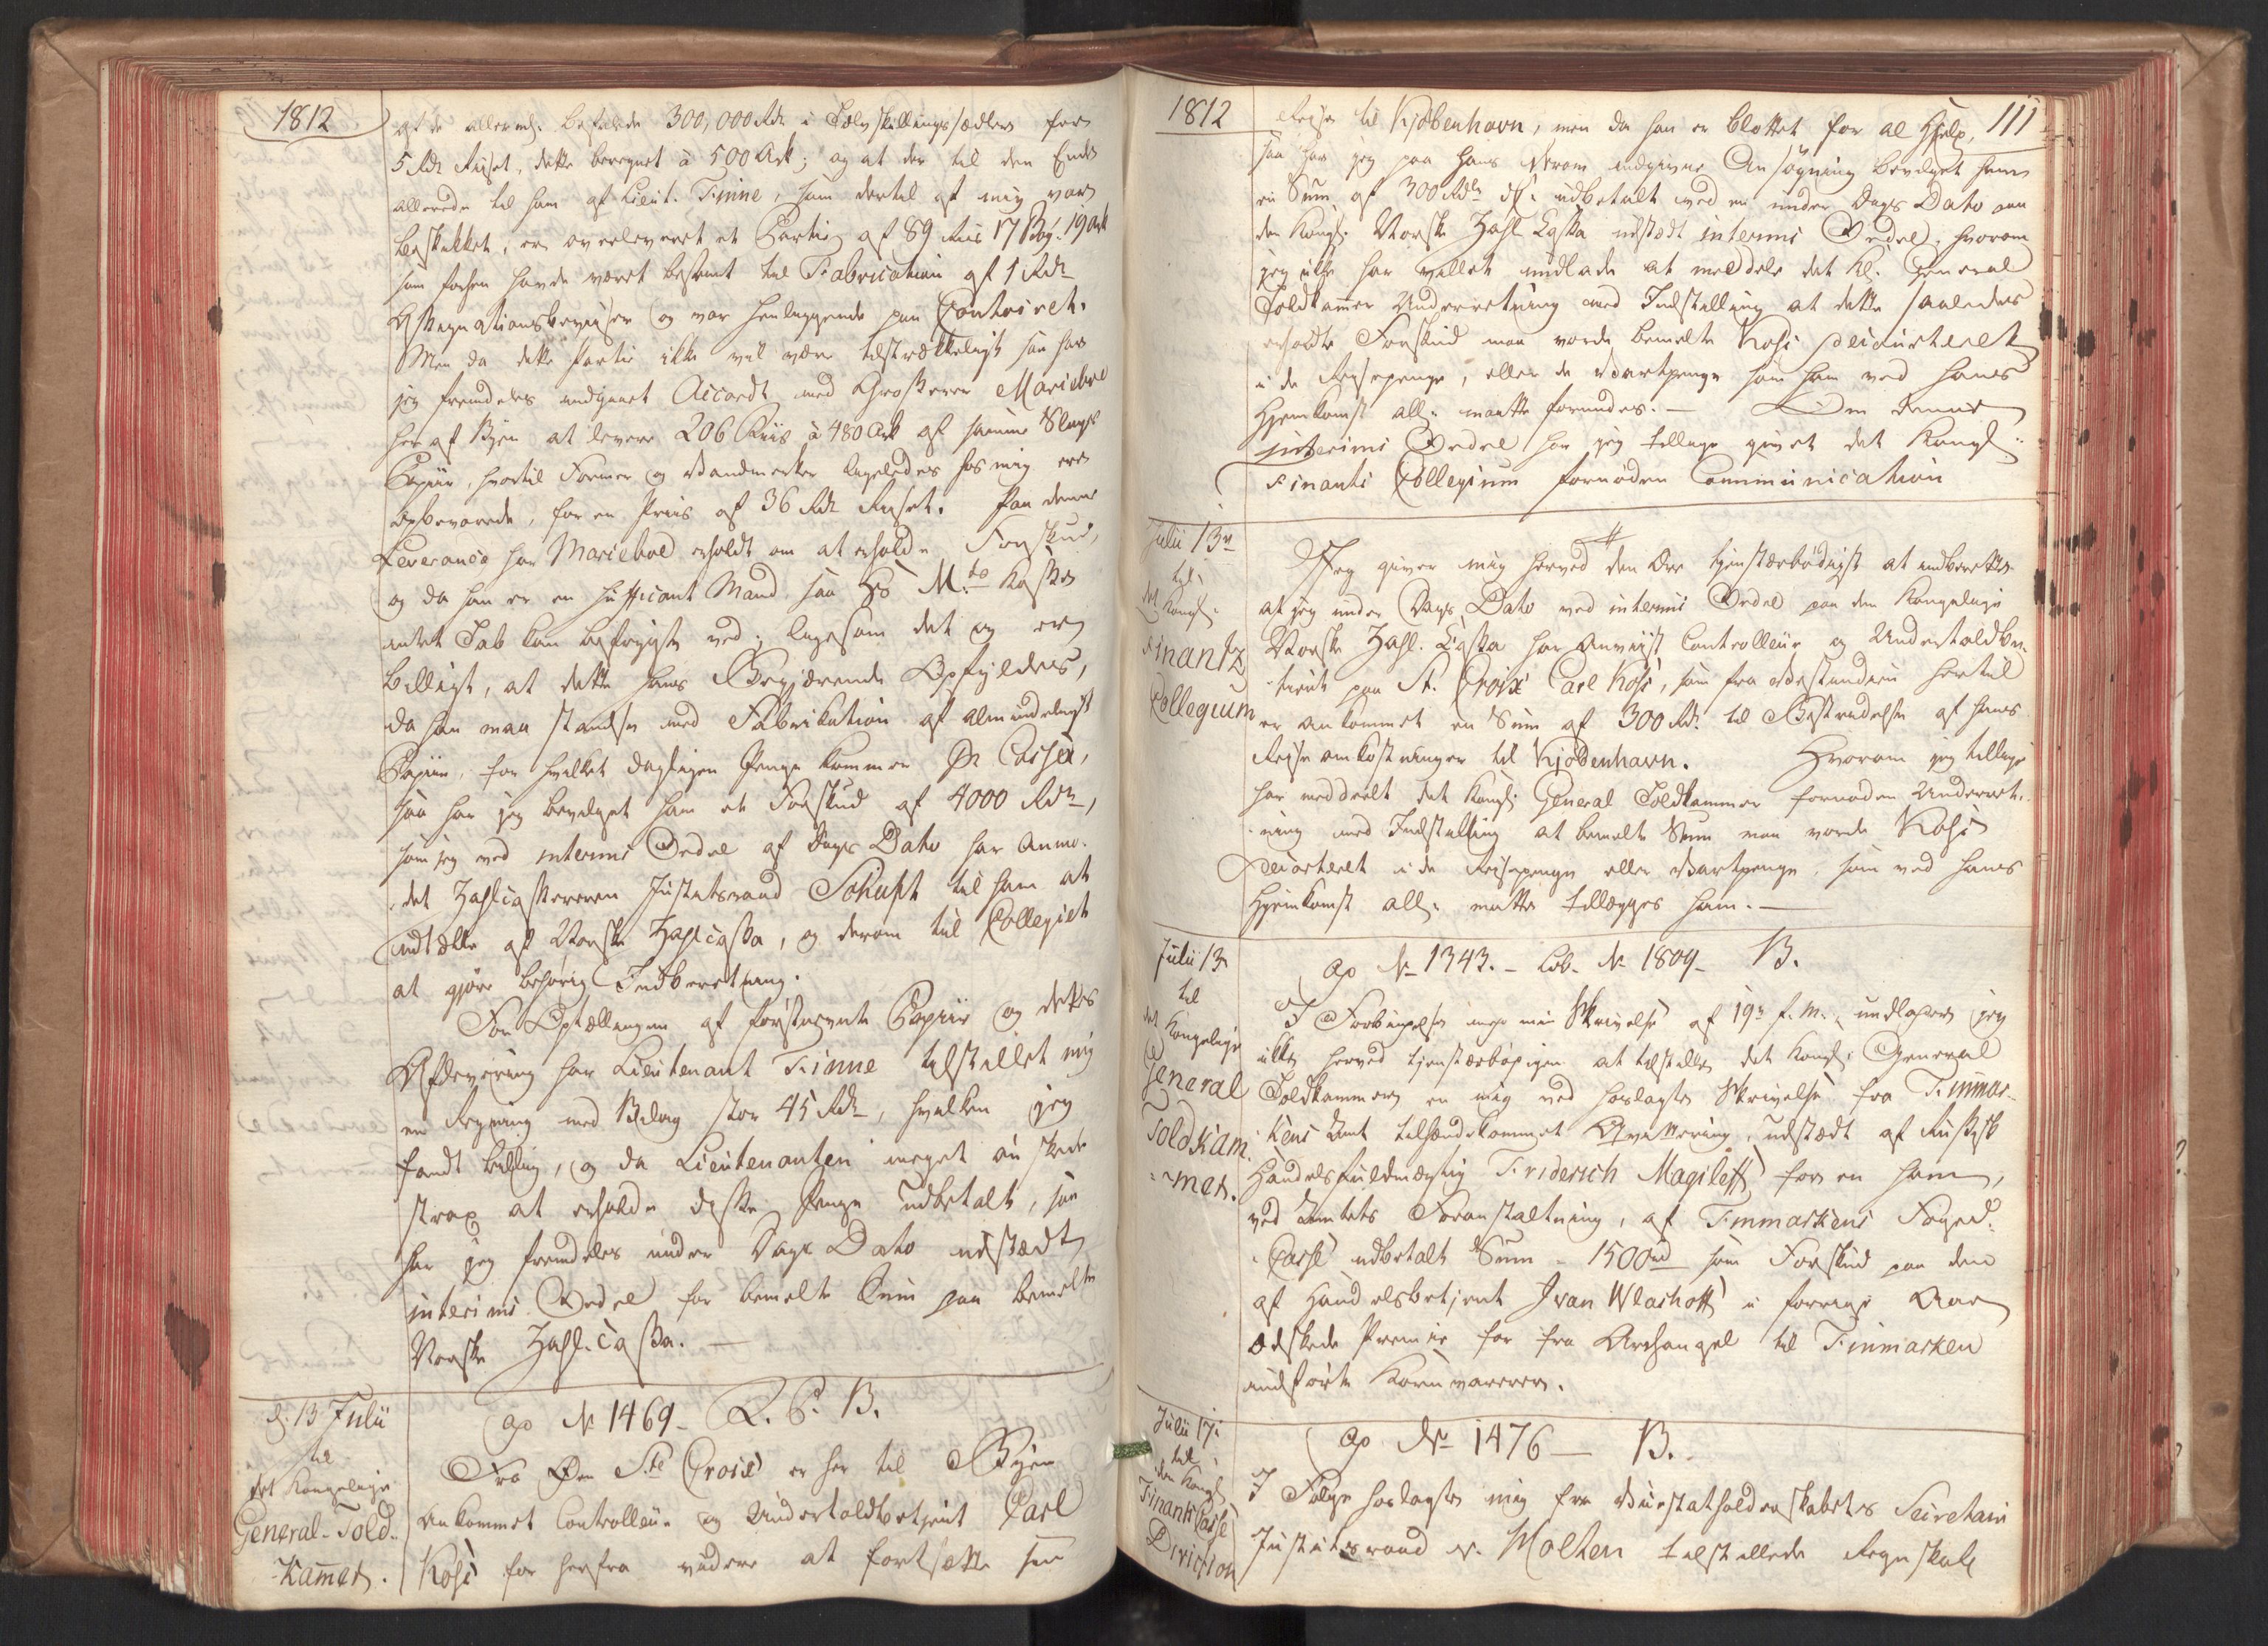 1812
af de allernd. befalede 300,000 Rdr i Tolvskillingssedler for
5 Rdr Riiset, dette beregnet à 500 Ark; og at der til den Ende
allerede til ham af Lieut. Tinne, som dertil af mig var
beskikket, er overleveret et Partie af 89 Riis 17 Bog. 19 Ark
som forhen havde været bestemt til Fabrication af 1 Rdr
Assignationsbeviiser og var henliggende paa Contoiret.
Men da dette Partie ikke vil være tilstrækkeligt saa har
jeg fremdeles indgaaet Accordt med Grosserer Marieboe
her af Byen at levere 206 Riis à 480 Ark af samme Slags
Papiir, hvortil Former og Vandmerker ligeledes hos mig ere
opbevarede, for en Priis af 36 Rdr Riiset. Paa denne
Leverance har Marieboe erholdt om at erholde Forskud,
og da han er en sufficant Mand saa Hs Mts Kasse
intet Tab kan befrygte ved; ligesom det og er
billigt, at dette hans Begjærende opfyldes,
da han maa standse med Fabrikation af almindeligt
Papiir, for hvilket dagligen Penge kommer pr Casse,
saa har jeg bevilget ham et Forskud af 4000 Rdr,
som jeg ved interims Ordre af Dags Dato har anmo-
det Zahlcassereren Justitsraad Schupt til ham at
udtælle af Norske Zahlcassa, og derom til Collegiet
at gjøre behørig Indberetning.
For Optællingen af førstnævnte Papiir og dets
Aflevering har Lieutenant Tinne tilstillet mig
en Regning med Bilag stor 45 Rdr, hvilken jeg
fandt billig, og da Lieutenanten meget ønskede
strax at erholde disse Penge udbetalt, saa
har jeg fremdeles under Dags Dato udstædt
interims Ordre for bemelte Sum paa bemelte
Norske Zahl-Cassa.
d. 13 Julii
til
det Kongelige
General-Told-
-Kamer.
ap No 1469- R. C. B.
Fra Øen Ste Croix er her til Byen
ankommet Controlleur og Undertoldbetjent Carl
Kohs for herfra videre at fortsætte sin
1812
111
Reise til Kjøbenhavn, men da han er blottet for al Hjelp,
saa har jeg paa hans herom indgivne Ansøgning bevilget ham
en Sum af 300 Rdr udbetalt ved en under Dags Dato paa
den Kongl. Norske Zahl Cassa udstædt interims Ordre, hvorom
jeg ikke har villet undlade at meddele det Kl. General
Toldkamer Underretning med Indstilling at dette saaledes
erholdte Forskud maa vorde bemelte Kohs decurteret
i de Reisepenge, eller de Vartpenge som ham ved hans
Hjemkomst all. maatte forundes. — Om denne
interims Ordre har jeg tillige givet det Kongl.
Finants Collegium fornøden Communication
Julii 13de
til
det Kongl.
Finantz
Collegium
Jeg giver mig herved den Ære tjenstærbødigst at indberette
at jeg under Dags Dato ved interims Ordre paa den Kongelige
Norske Zahl. Cassa har anviist Controlleur og Undertoldbe-
tient paa St. Croix Carl Kohs, som fra Vestindien hertil
er ankommet en Sum af 300 Rdr. til Bestridelse af hans
Reiseomkostninger til Kjøbenhavn. Hvorom jeg tillige
har meddeelt det Kongl. General Toldkammer fornøden Underret-
ning med Indstilling at bemelte Sum maa vorde Kohs
decurteret i de Reisepenge eller Vartpenge, som ved hans
Hjemkomst all. maatte tillægges ham. —
Julii 13
til
det Kongelige
General
Toldkam-
mer.
ap No 1343. - Lob. No 1809- B.
I Forbindelse med min Skrivelse af 19de f. M., undlader jeg
ikke herved tjenstærbødigen at tilstille det Kongl. General
Toldkammer en mig ved hoslagte Skrivelse fra Finmar-
kens Amt tilhændekommet Qvittering, udstædt af Russisk
Handelsfuldmægtig Friderich Magileff for en ham,
ved Amtets Foranstaltning, af Finmarkens Foged-
Casse udbetalt Sum - 1500 rd som Forskud paa den
af Handelsbetjent Ivan Wlachoff i forrige Aar
ødskede Premie for fra Archangel til Finmarken
indførte Kornvarerer.
Julii 17.
til
den Kongl.
Finants Casse
Direction
ap No 1476 — B.
I Følge hoslagte mig fra Viicestatholderskabets Secretair
Justitsraad v. Molken tilstillede Regnskab